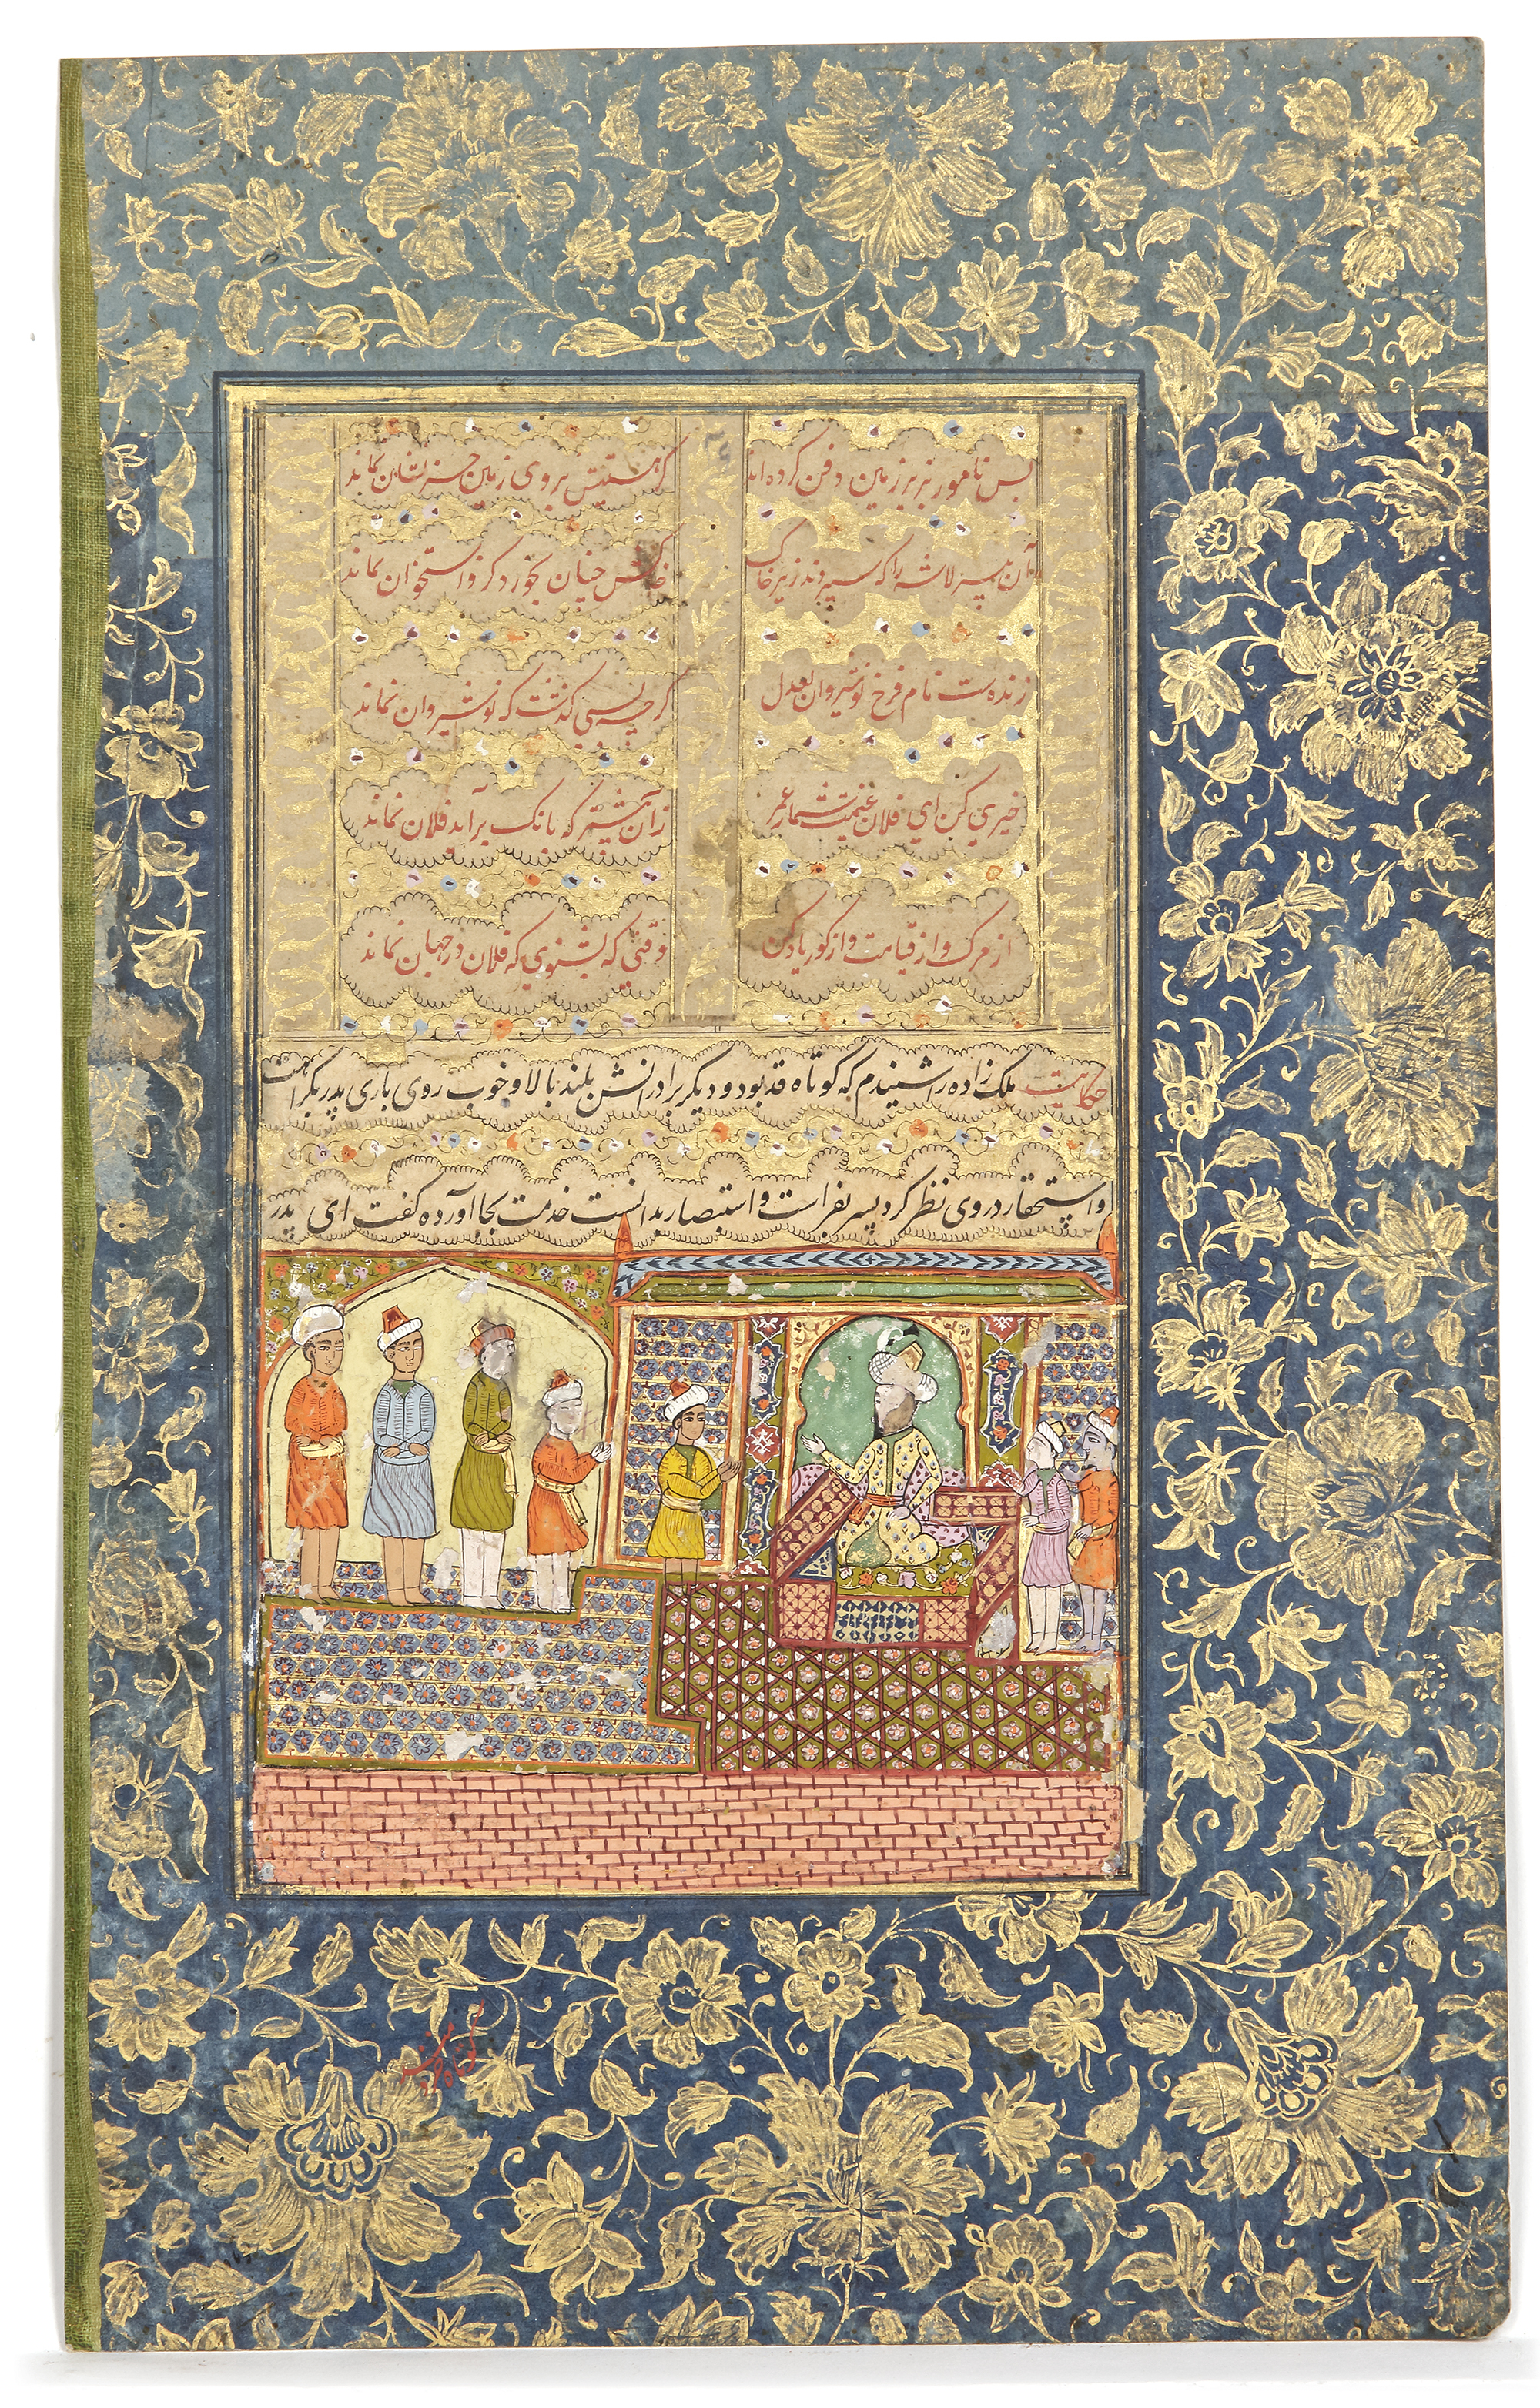 بس نامور بزیر زمین دفن کرده اند
کز هستیش بروی زمین نشان نماند
آن پیر لاشه را که سپردند زیر خاک
خاکش چنان بخورد کزو استخوان نماند
زنده ست نام فرخ نوشیروان بعدل
گرچه بسی گذشت که نوشیروان نماند
خیری کن ای فلان غنیمت شمار عمر
زان پیشتر که بانگ برآید فلان نماند
از مرگ و از قیامت و از گور یاد کن
وقتی که بشنوی که فلان در جهان نماند
حکایت ملک زاده را شنیدم که کوتاه قد بود و دیگر برادرانش بلند بالا و خوب روی باری پدر بکراهت
و استحقار در وی نظر کرد پسر بفراست و استبصار بدانست خدمت بجا آورده گفت ای پدر
کوتاه خردمند